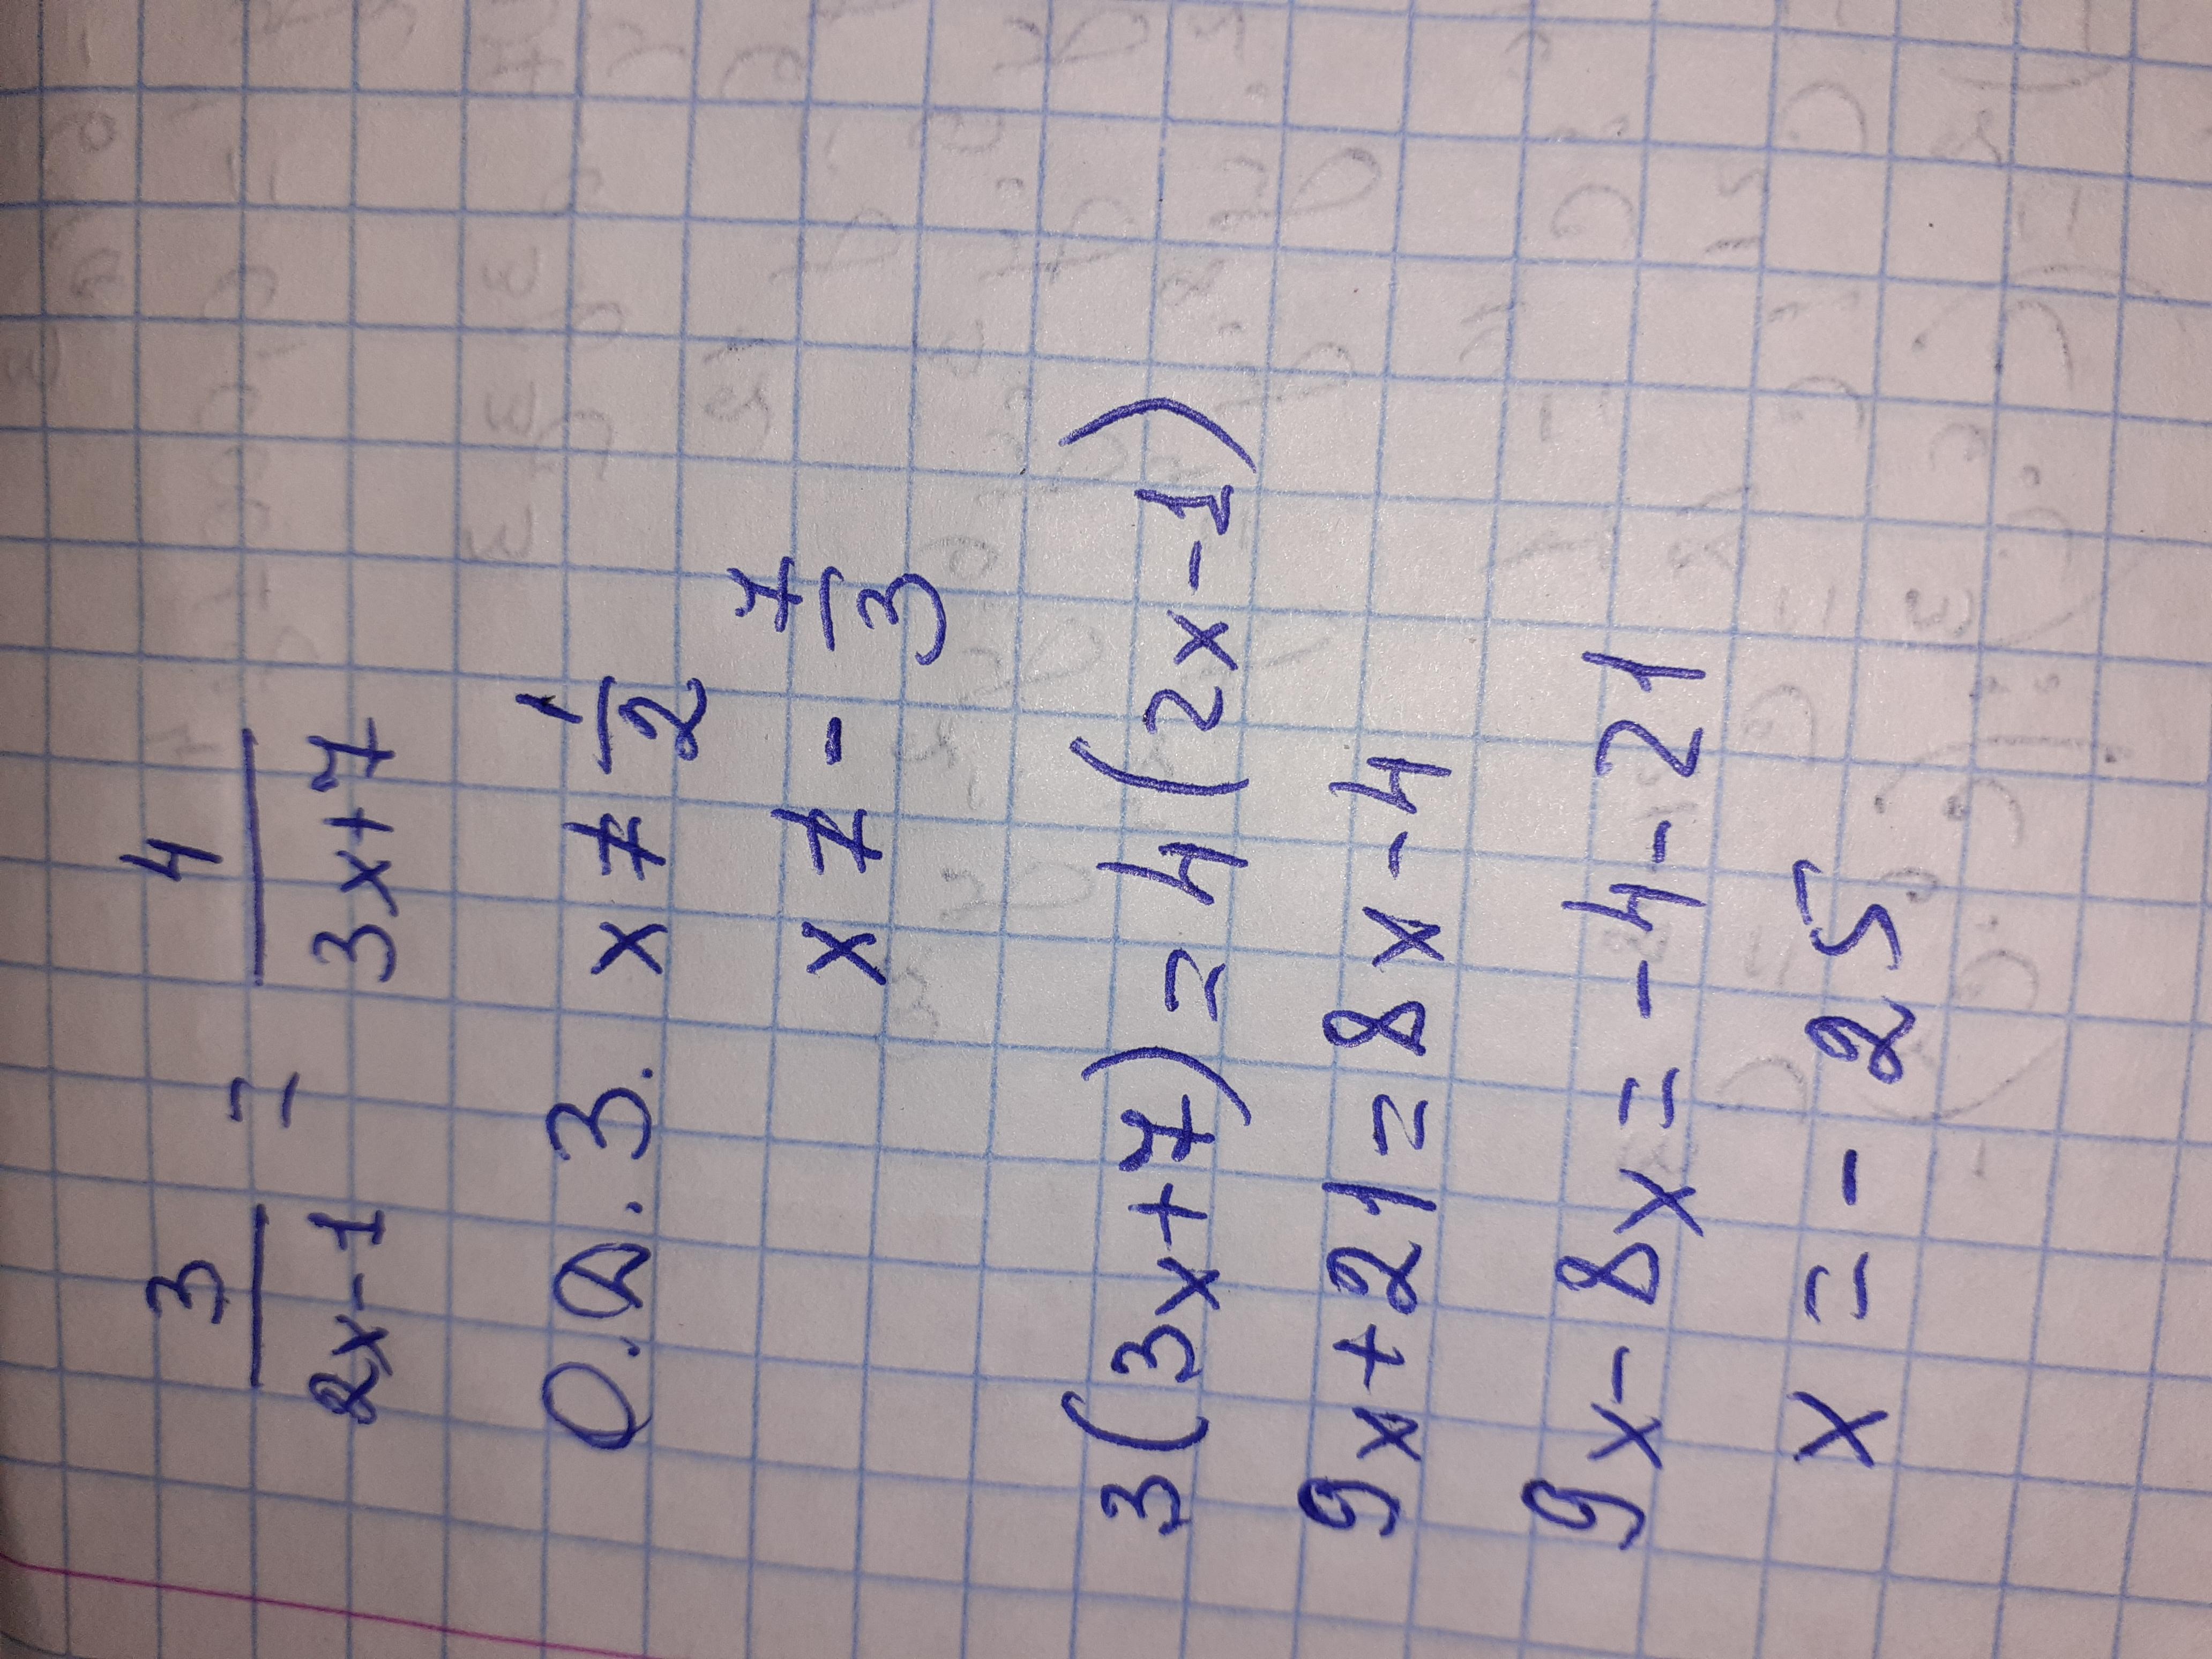 3/(2x-1) = 4/(3x+7)
О.Д.З. x ≠ 1/2
x ≠ - 7/3
3(3x+7) = 4(2x-1)
9x+21 = 8x-4
9x-8x = -4-21
x = -25